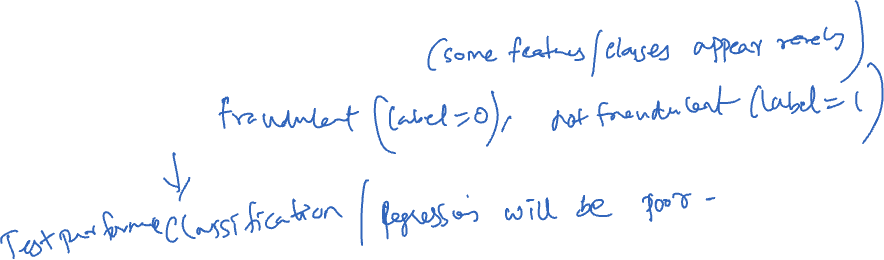 (some features/classes appear rarely)
fraudulent (label=0), not fraudulent (label=1)
Test performe Classification / Regression will be poor -